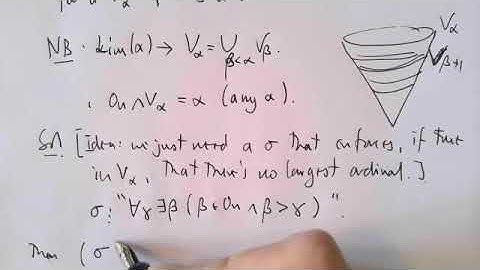 NB · Lim(α) → Vα = ⋃β<α Vβ.
Vα
Vβ+1
, On ∩ Vα = α (any α).
[Idea: we just need a σ that enforces, if true
in Vα, that there's no largest ordinal.]
σ: "∀γ ∃β (β ∈ On ∧ β > γ)".
Then (σ